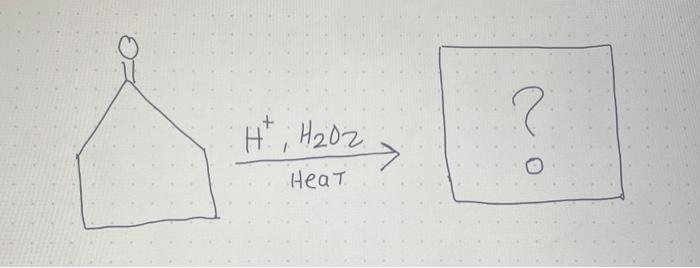 O
H⁺, H₂O₂
Heat
?